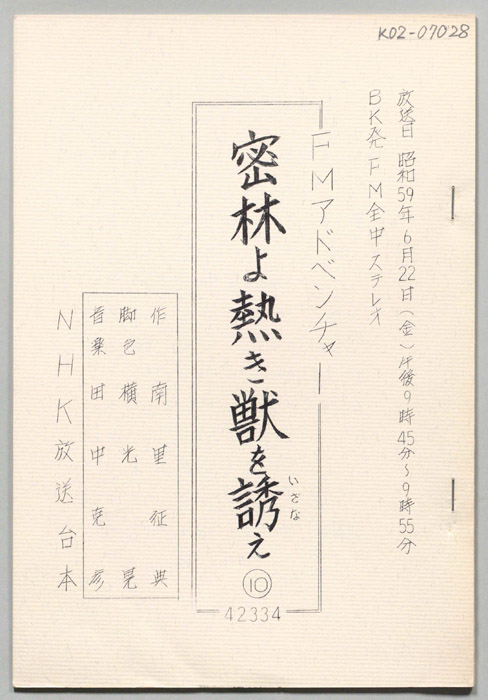 K02-07028
放送日 昭和59年6月22日(金)午後9時45分~9時55分
BK発 FM全中 ステレオ
FMアドベンチャー
密林よ熱き獣を誘え ⑩
いざな
42334
作 南里征典
脚色 横光晃
音楽 田中克彦
NHK放送台本